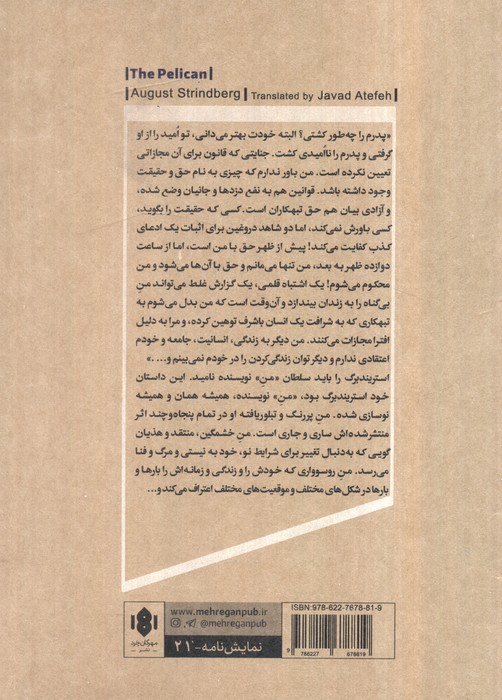 The Pelican
August Strindberg | Translated by Javad Atefeh
«پدرم را چه‌طور کشتی؟ البته خودت بهتر می‌دانی، تو اُمید را از او
گرفتی و پدرم را نااُمیدی کشت. جنایتی که قانون برای آن مجازاتی
تعیین نکرده است. من باور ندارم که چیزی به نام حق و حقیقت
وجود داشته باشد. قوانین هم به نفع دزدها و جانیان وضع شده،
و آزادی بیان هم حق تبهکاران است. کسی که حقیقت را بگوید،
کسی باورش نمی‌کند، اما دو شاهد دروغین برای اثبات یک ادعای
کذب کفایت می‌کند! پیش از ظهر حق با من است، اما از ساعت
دوازده ظهر به بعد، من تنها می‌مانم و حق با آن‌ها می‌شود و من
محکوم می‌شوم! یک اشتباه قلمی، یک گزارش غلط می‌تواند منِ
بی‌گناه را به زندان بیندازد و آن‌وقت است که من بدل می‌شوم به
تبهکاری که به شرافت یک انسان باشرف توهین کرده، و مرا به دلیل
افترا مجازات می‌کنند. من دیگر به زندگی، انسانیت، جامعه و خودم
اعتقادی ندارم و دیگر توان زندگی‌کردن را در خودم نمی‌بینم و....»
استریندبرگ را باید سلطان «منِ» نویسنده نامید. این داستان
خود استریندبرگ بود، «منِ» نویسنده، همیشه همان و همیشه
نوسازی شده. من پررنگ و تبلوریافته او در تمام پنجاه‌وچند اثر
منتشرشده‌اش ساری و جاری است. من خشمگین، منتقد و هذیان
گویی که به‌دنبال تغییر برای شرایط نو، خود به نیستی و مرگ و فنا
می‌رسد. منِ روسوواری که خودش را و زندگی و زمانه‌اش را بارها و
بارها در شکل‌های مختلف و موقعیت‌های مختلف اعتراف می‌کند و...
مهرگان خرد
نشر
www.mehreganpub.ir
@mehreganpub
نمایش‌نامه-۲۱۰
ISBN:978-622-7678-81-9
9 786227 678819